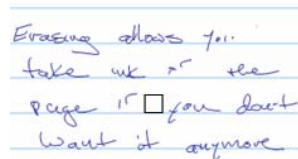 Erasing allows you
take ink off the
page if you don't
want it anymore